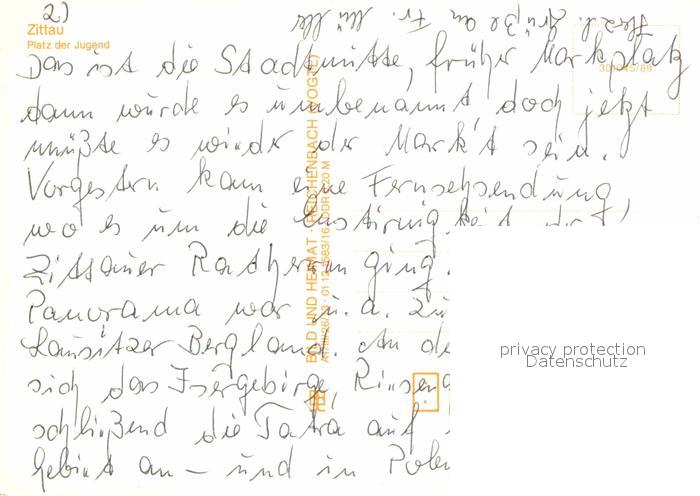 2)
Zittau
Platz der Jugend
Herzl. Grüße an Fr. Müller
301045/89
Das ist die Stadtmitte, früher Markplatz
dann wurde es umbenannt, doch jetzt
müßte es wieder der Markt sein.
Vorgestern kam eine Fernsehsendung,
wo es um die
Zittauer Ratsherrn ging.
Panorama war u. a. zu
Lausitzer Bergland. An de
sich das Isergebirge, Riesen
schließend die Tatra auf
Gebiet an – und in Polen
BILD UND HEIMAT · REICHENBACH (VOGTL)
privacy protection
Datenschutz